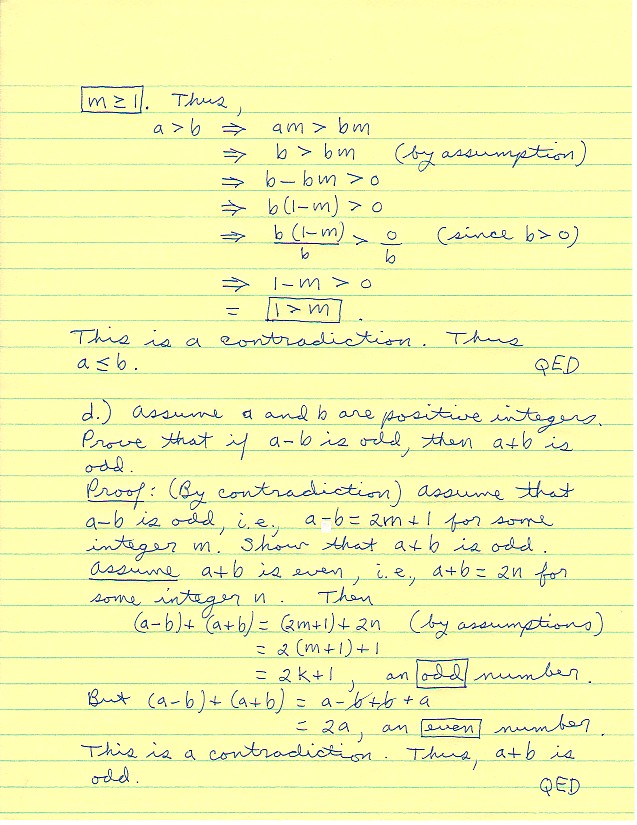 m ≥ 1. Thus,
a > b ⇒ am > bm
⇒ b > bm (by assumption)
⇒ b - bm > 0
⇒ b(1-m) > 0
⇒ b(1-m)/b > 0/b (since b > 0)
⇒ 1-m > 0
= 1 > m.
This is a contradiction. Thus
a ≤ b. QED
d.) Assume a and b are positive integers.
Prove that if a-b is odd, then a+b is
odd.
Proof: (By contradiction) Assume that
a-b is odd, i.e., a-b = 2m+1 for some
integer m. Show that a+b is odd.
Assume a+b is even, i.e., a+b = 2n for
some integer n. Then
(a-b)+(a+b) = (2m+1)+2n (by assumptions)
= 2(m+1)+1
= 2k+1, an odd number.
But (a-b)+(a+b) = a-b+b+a
= 2a, an even number.
This is a contradiction. Thus, a+b is
odd. QED